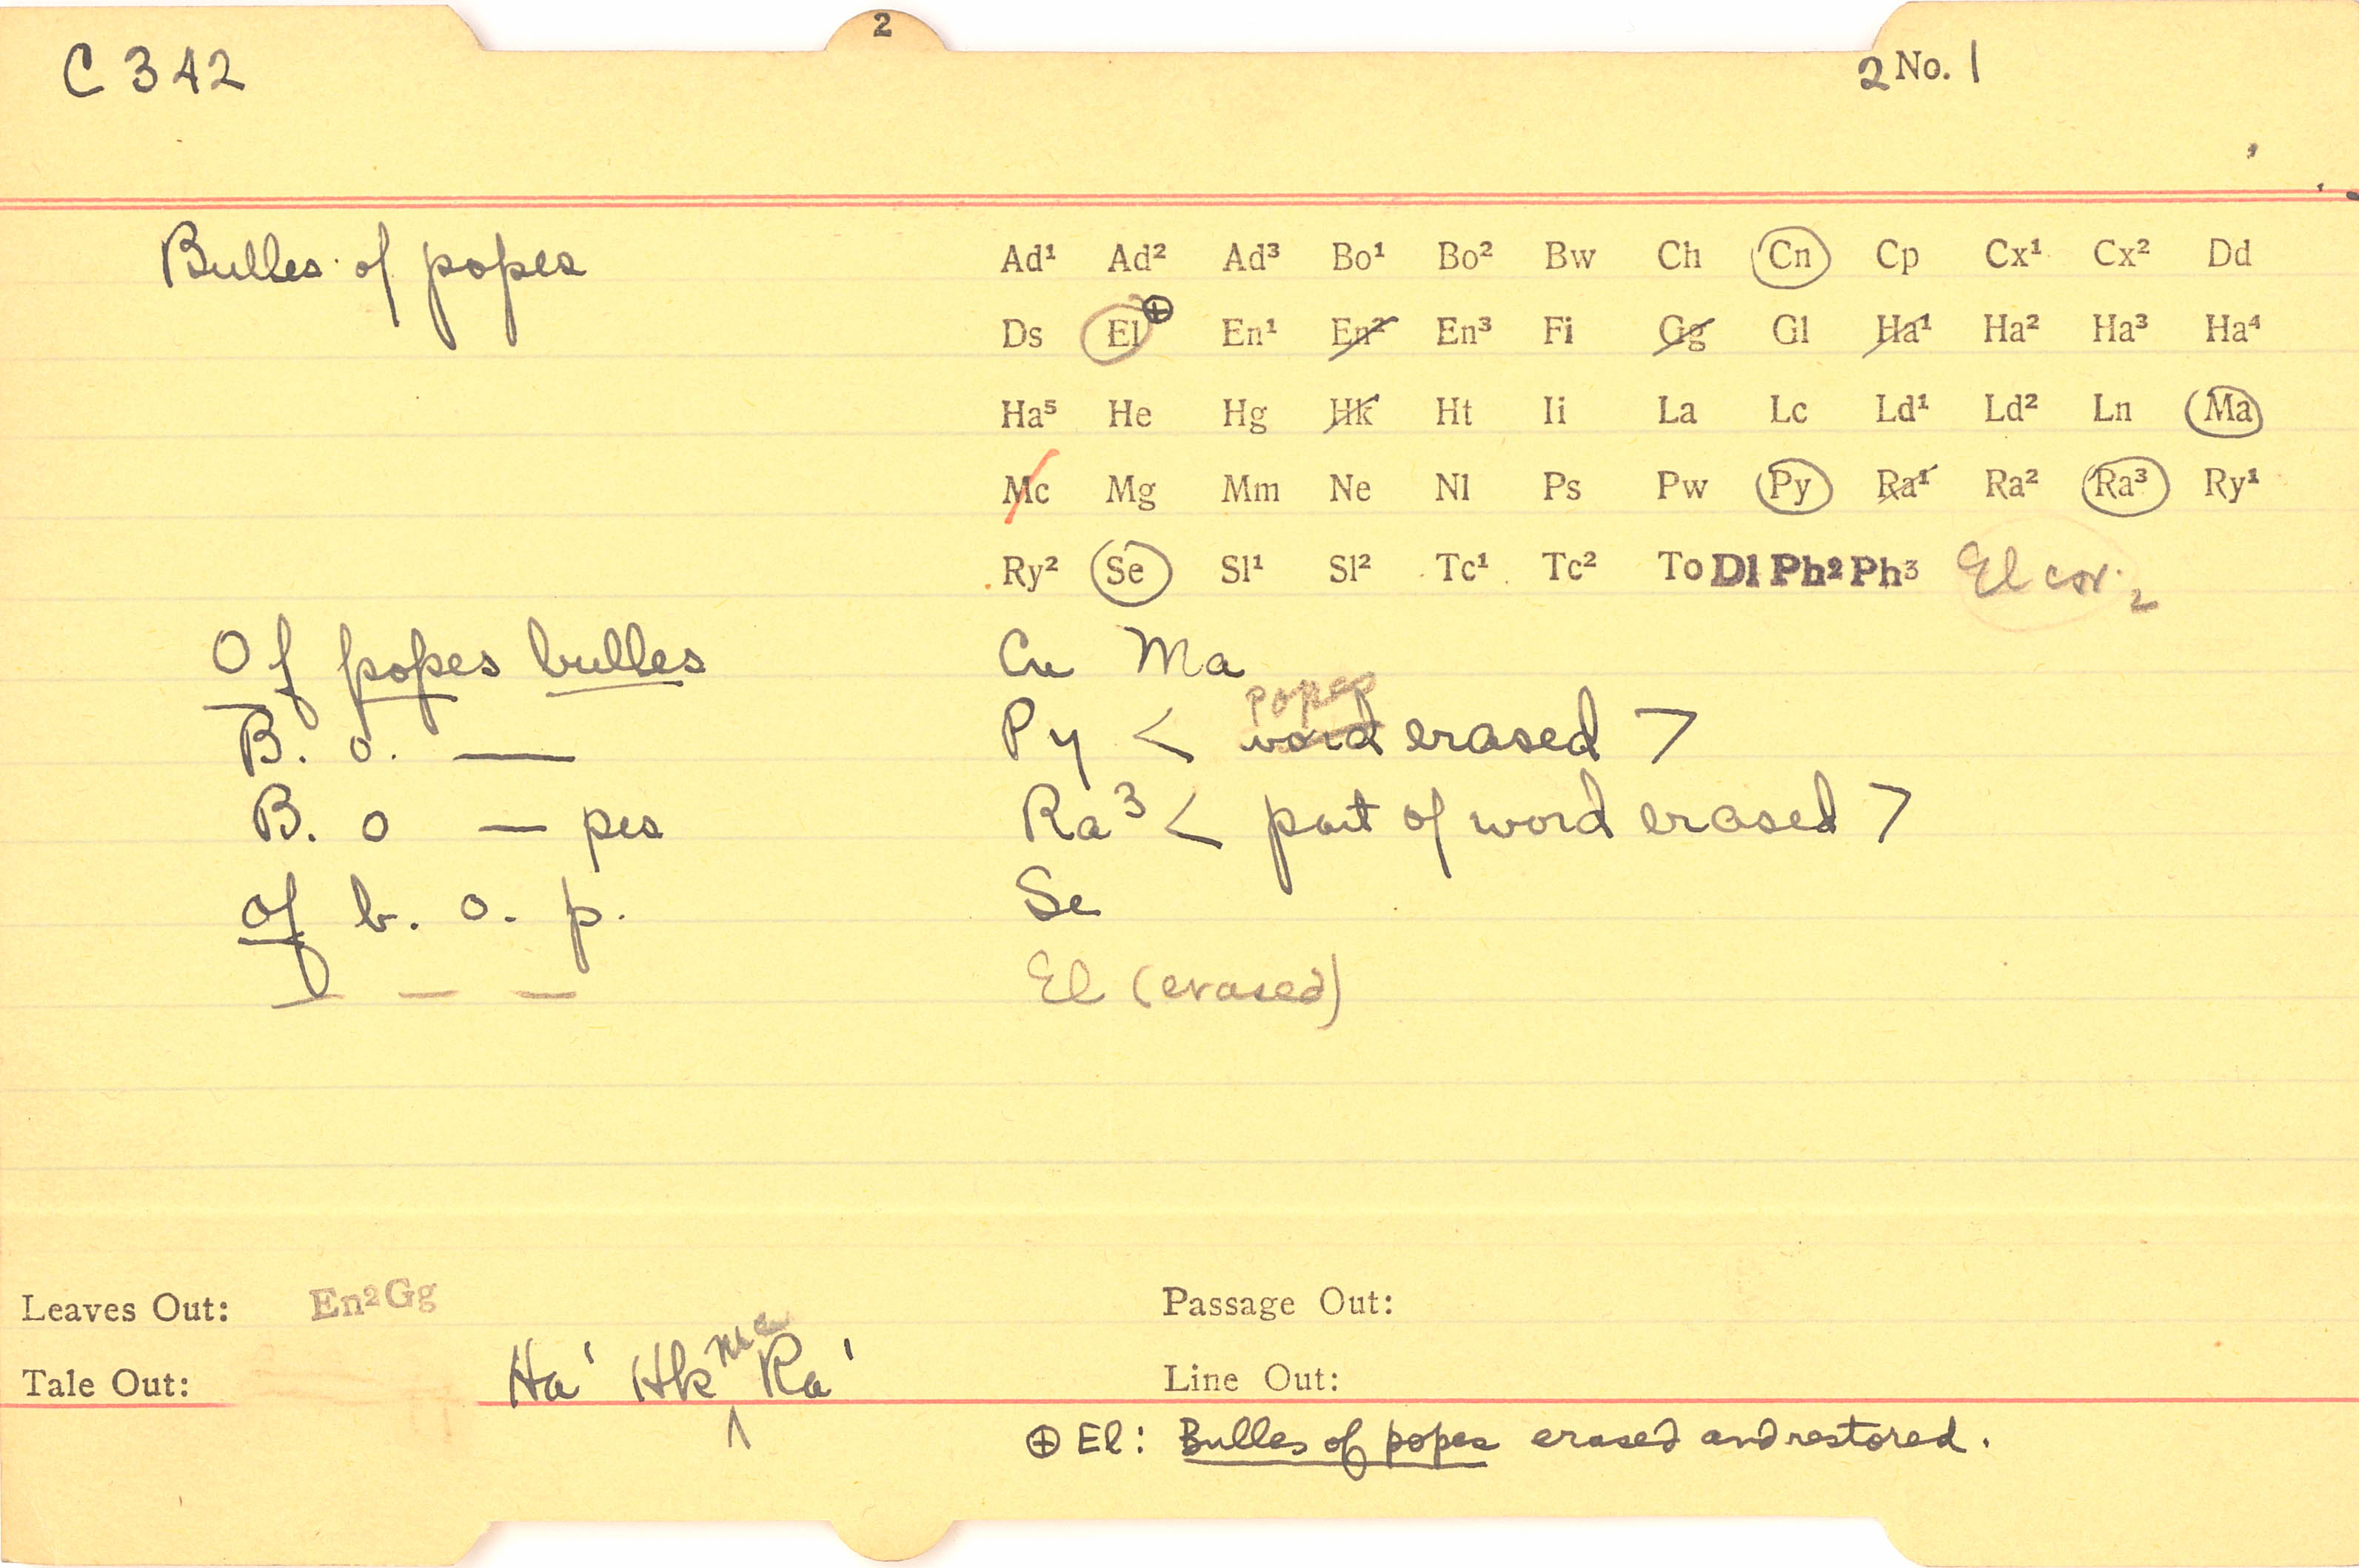 2
C 342
2 No. 1
Bulles of popes
Ad¹ Ad² Ad³ Bo¹ Bo² Bw Ch Cn Cp Cx¹ Cx² Dd
Ds El ⊕ En¹ En² En³ Fi Gg Gl Ha¹ Ha² Ha³ Ha⁴
Ha⁵ He Hg Hk Ht Ii La Lc Ld¹ Ld² Ln Ma
Mc Mg Mm Ne Nl Ps Pw Py Ra¹ Ra² Ra³ Ry¹
Ry² Se Sl¹ Sl² Tc¹ Tc² To Dl Ph² Ph³ El cor. 2
Of popes bulles Cn Ma
popes
B. o. — Py < word erased >
B. o — pes Ra³ < part of word erased >
Of b. o. p. Se
— — — El (erased)
Leaves Out: En² Gg Passage Out:
Mc
Tale Out: Ha¹ Hk ∧ Ra¹ Line Out:
⊕ El: Bulles of popes erased and restored.